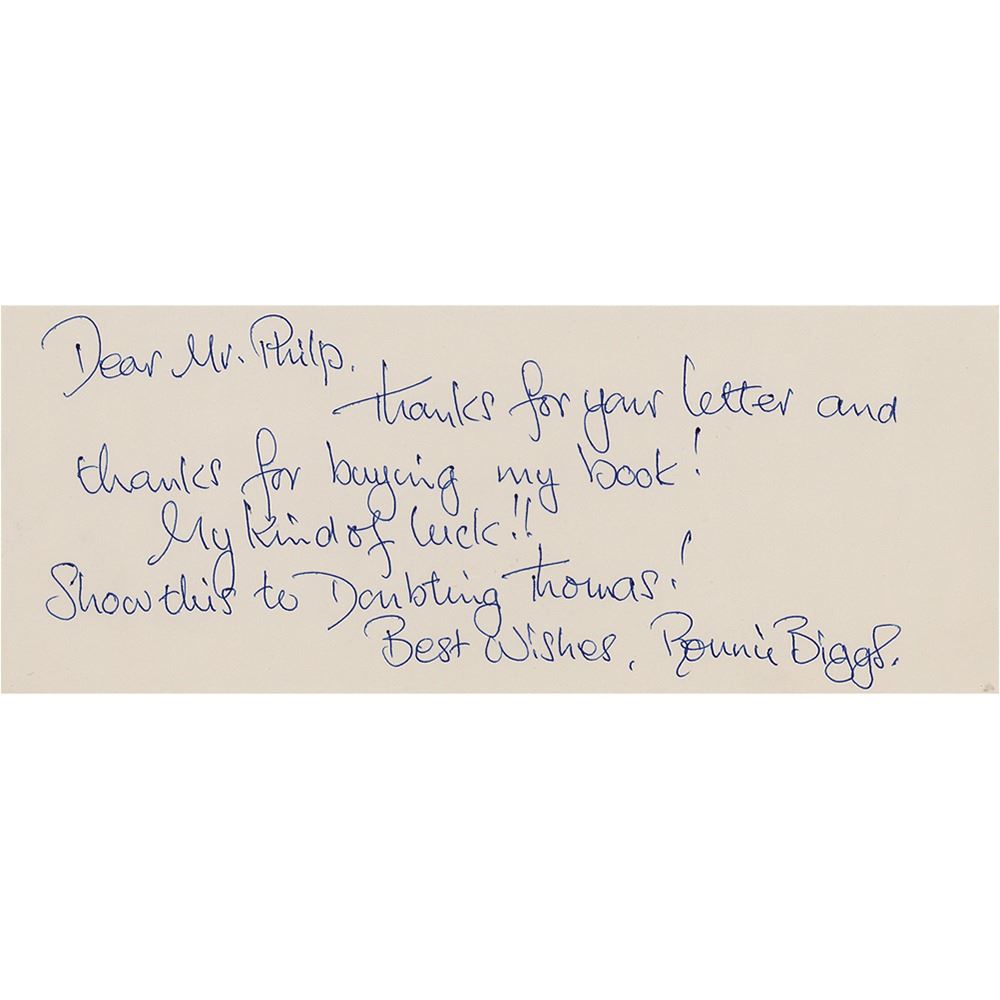 Dear Mr. Philp.
thanks for your letter and
thanks for buying my book!
My kind of luck!!
Show this to Doubting Thomas!
Best Wishes, Ronnie Biggs.